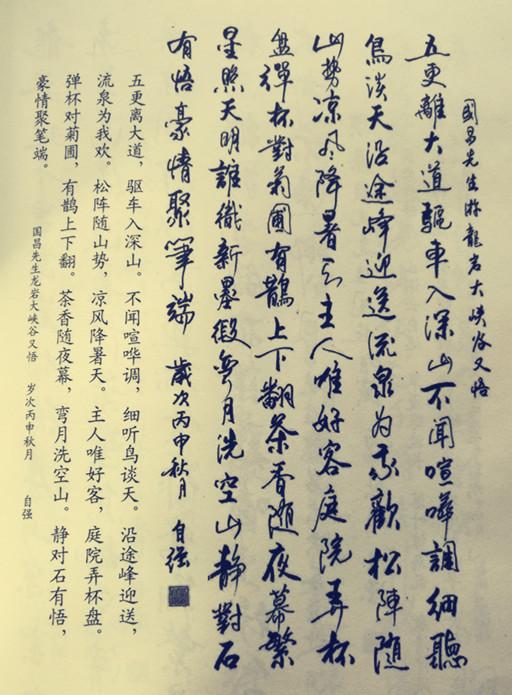 國昌先生游龍岩大峽谷又悟
五更離大道驅車入深山不聞喧嘩調細聽
鳥談天沿途峰迎送流泉为我歡松陣隨
山勢凉風降暑天主人唯好客庭院弄杯
盤彈杯對菊圃有鵲上下翻茶香随夜幕繁
星照天明誰識新墨月洗空山靜對石
有悟豪情聚筆端 歲次丙申秋月 自强
五更离大道，驱车入深山。不闻喧哗调，细听鸟谈天。沿途峰迎送，
流泉为我欢。松阵随山势，凉风降暑天。主人唯好客，庭院弄杯盘。
弹杯对菊圃，有鹊上下翻。茶香随夜幕，弯月洗空山。静对石有悟，
豪情聚笔端。
国昌先生龙岩大峡谷又悟 岁次丙申秋月 自强